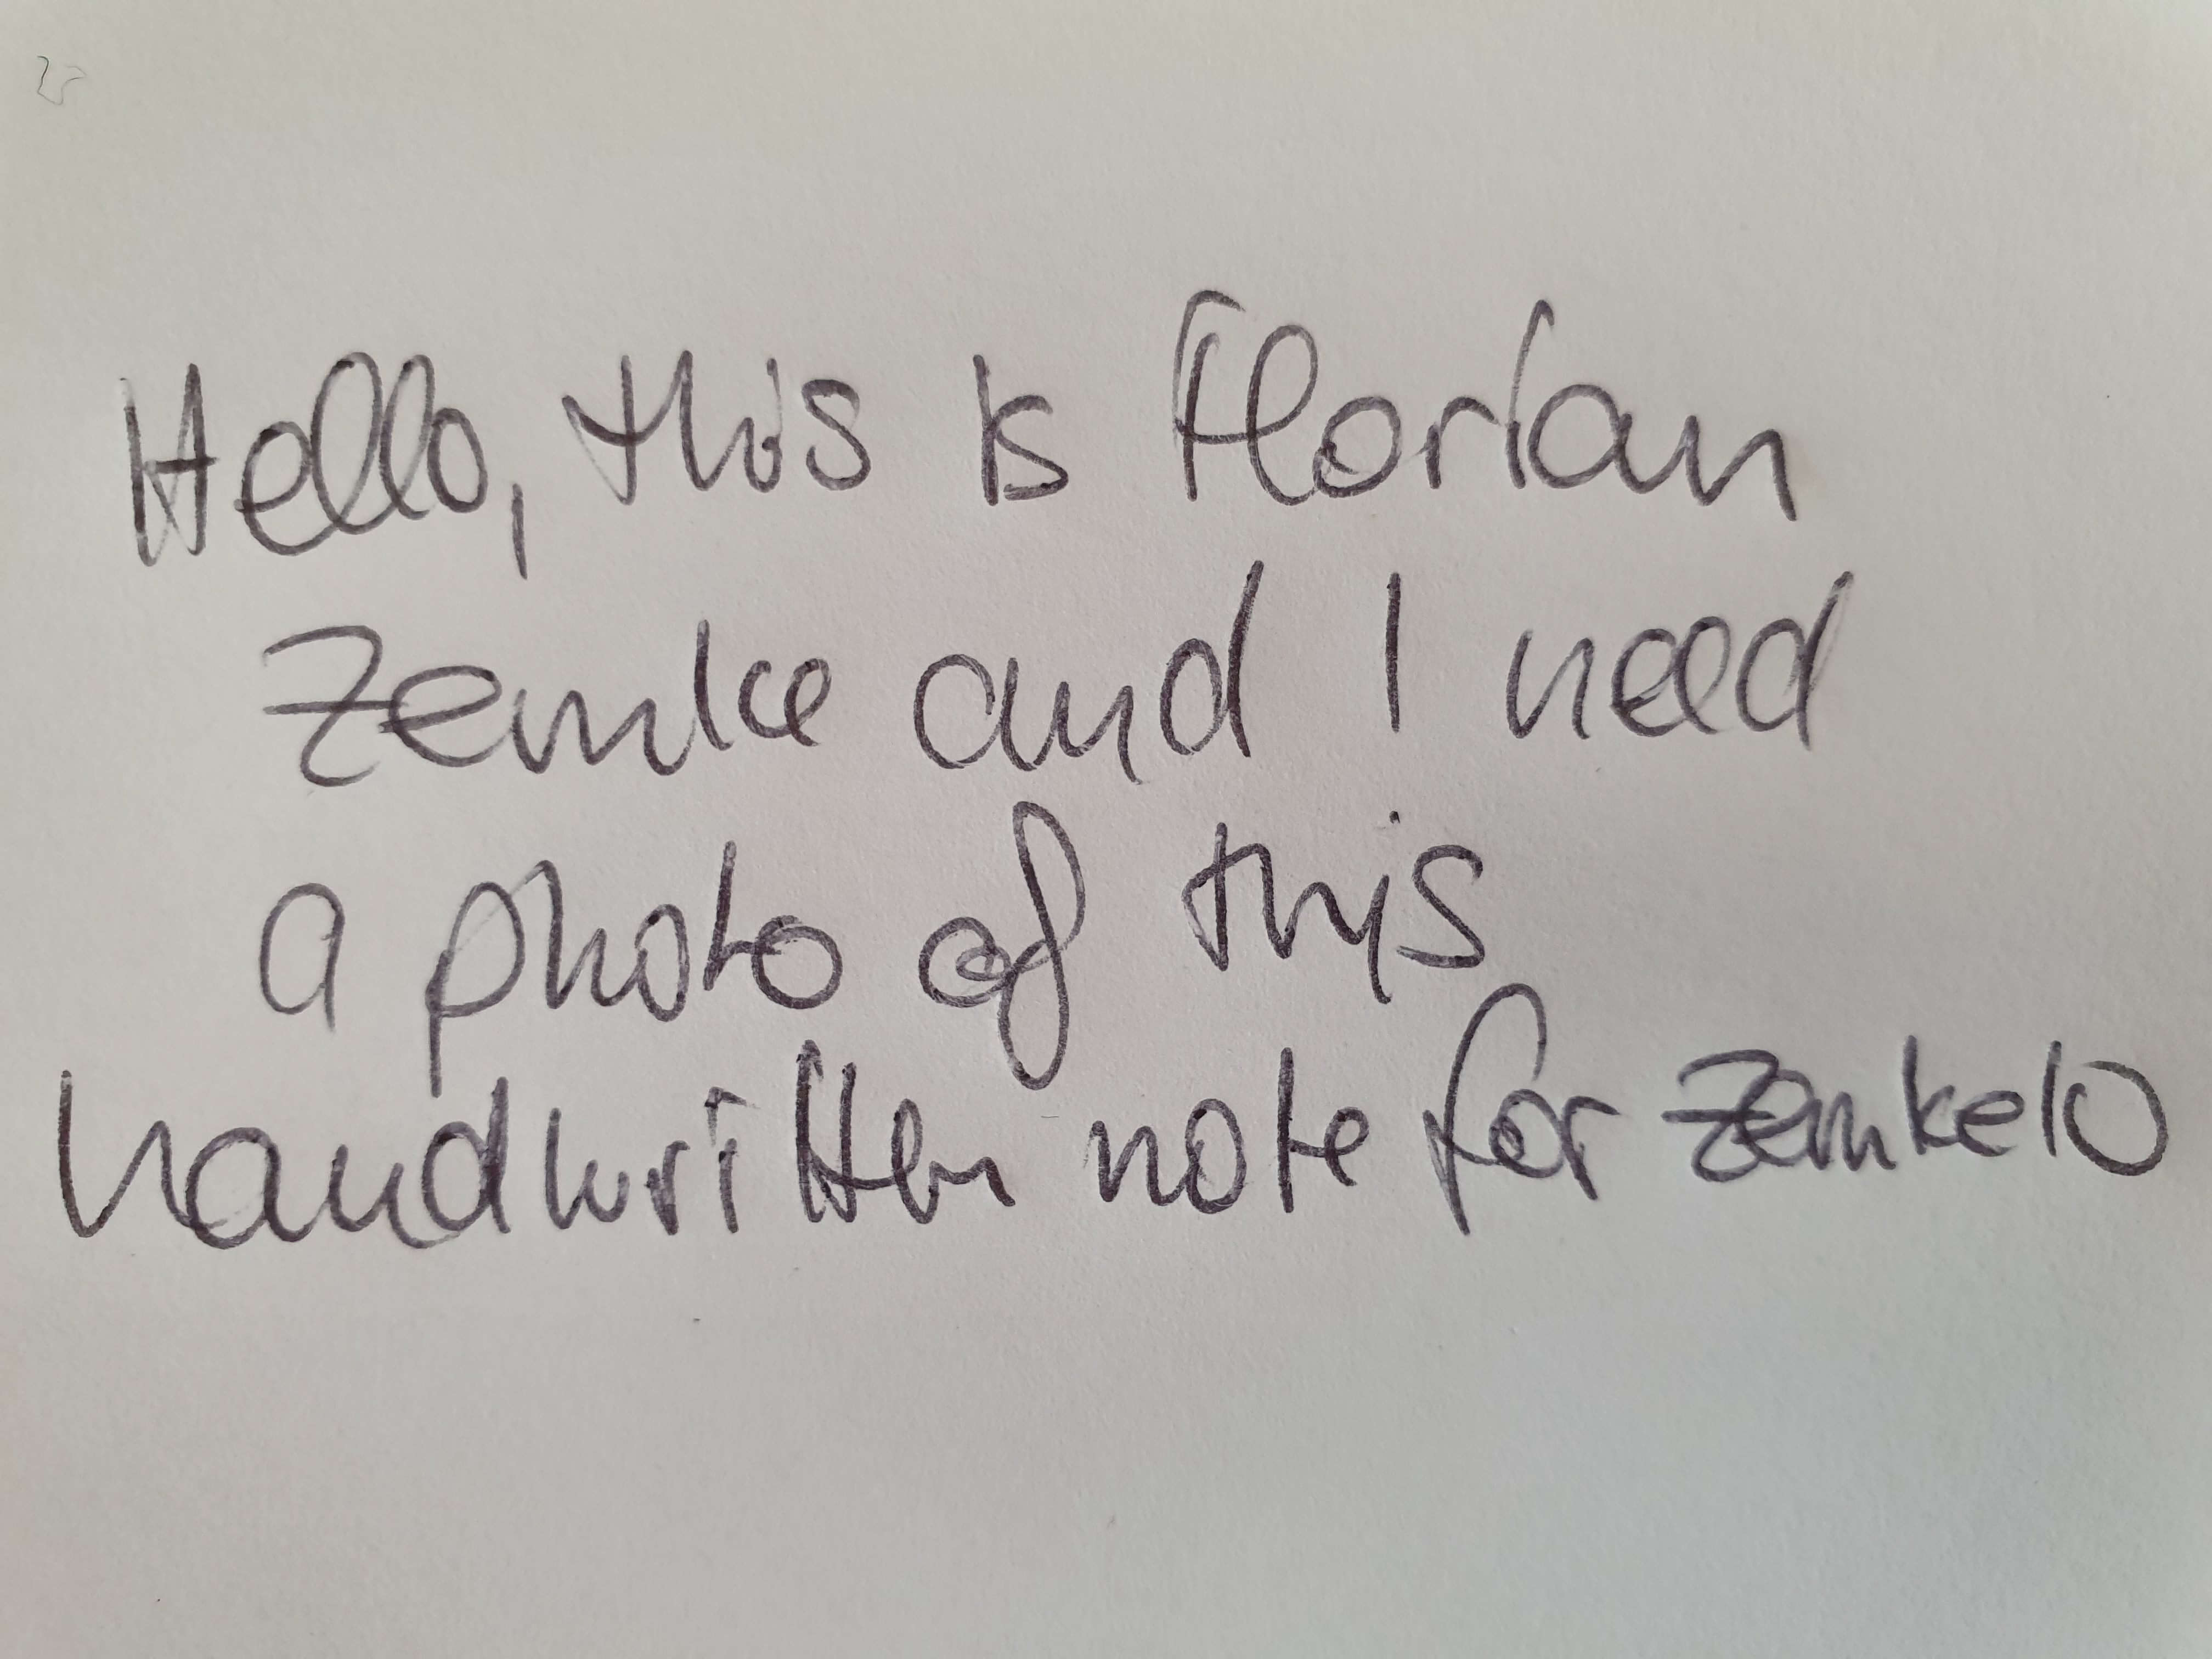 Hello, this is Florian
Zemke and I need
a photo of this
handwritten note for Zemkelo